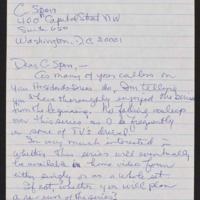 C-Span
400 Capitol Street NW
Suite 650
Washington, DC 20001
Dear C-Span,
As many of your callers on
your Presidents Series do, I'm telling
you I have thoroughly enjoyed the series
from the beginning. He failed asleep
over this series as I so frequently
on some of TV's
I'm very much interested in
whether this series will eventually
be available in home video form
either singly or as a whole set.
If not, whether you will plan
a re-run of the series?